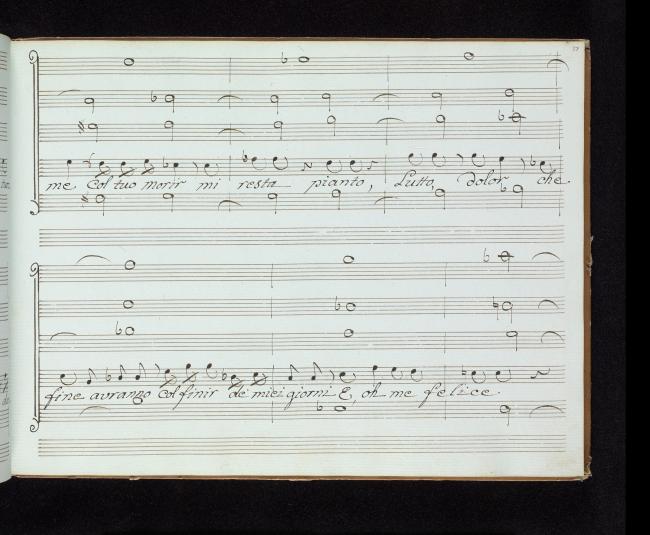 me Col tuo morir mi resta pianto, Lutto, dolor che
fine avranno Col finir de miei giorni E, oh me felice